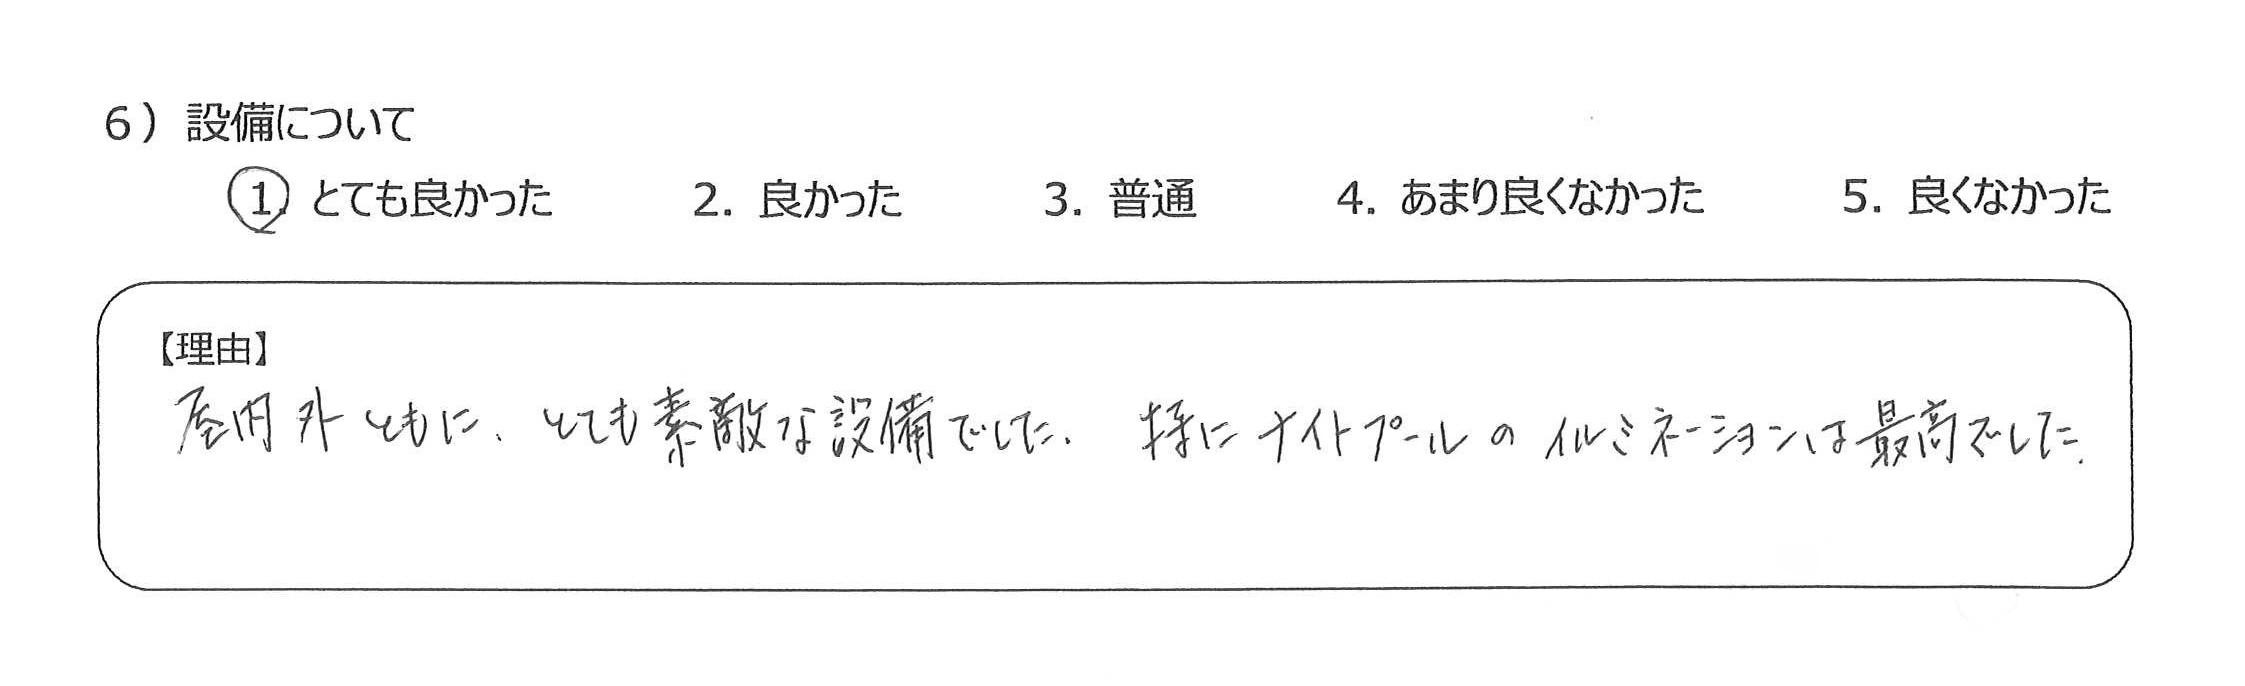 6）設備について
1. とても良かった 2. 良かった 3. 普通 4. あまり良くなかった 5. 良くなかった
【理由】
屋内外ともに、とても素敵な設備でした。特にナイトプールのイルミネーションは最高でした。